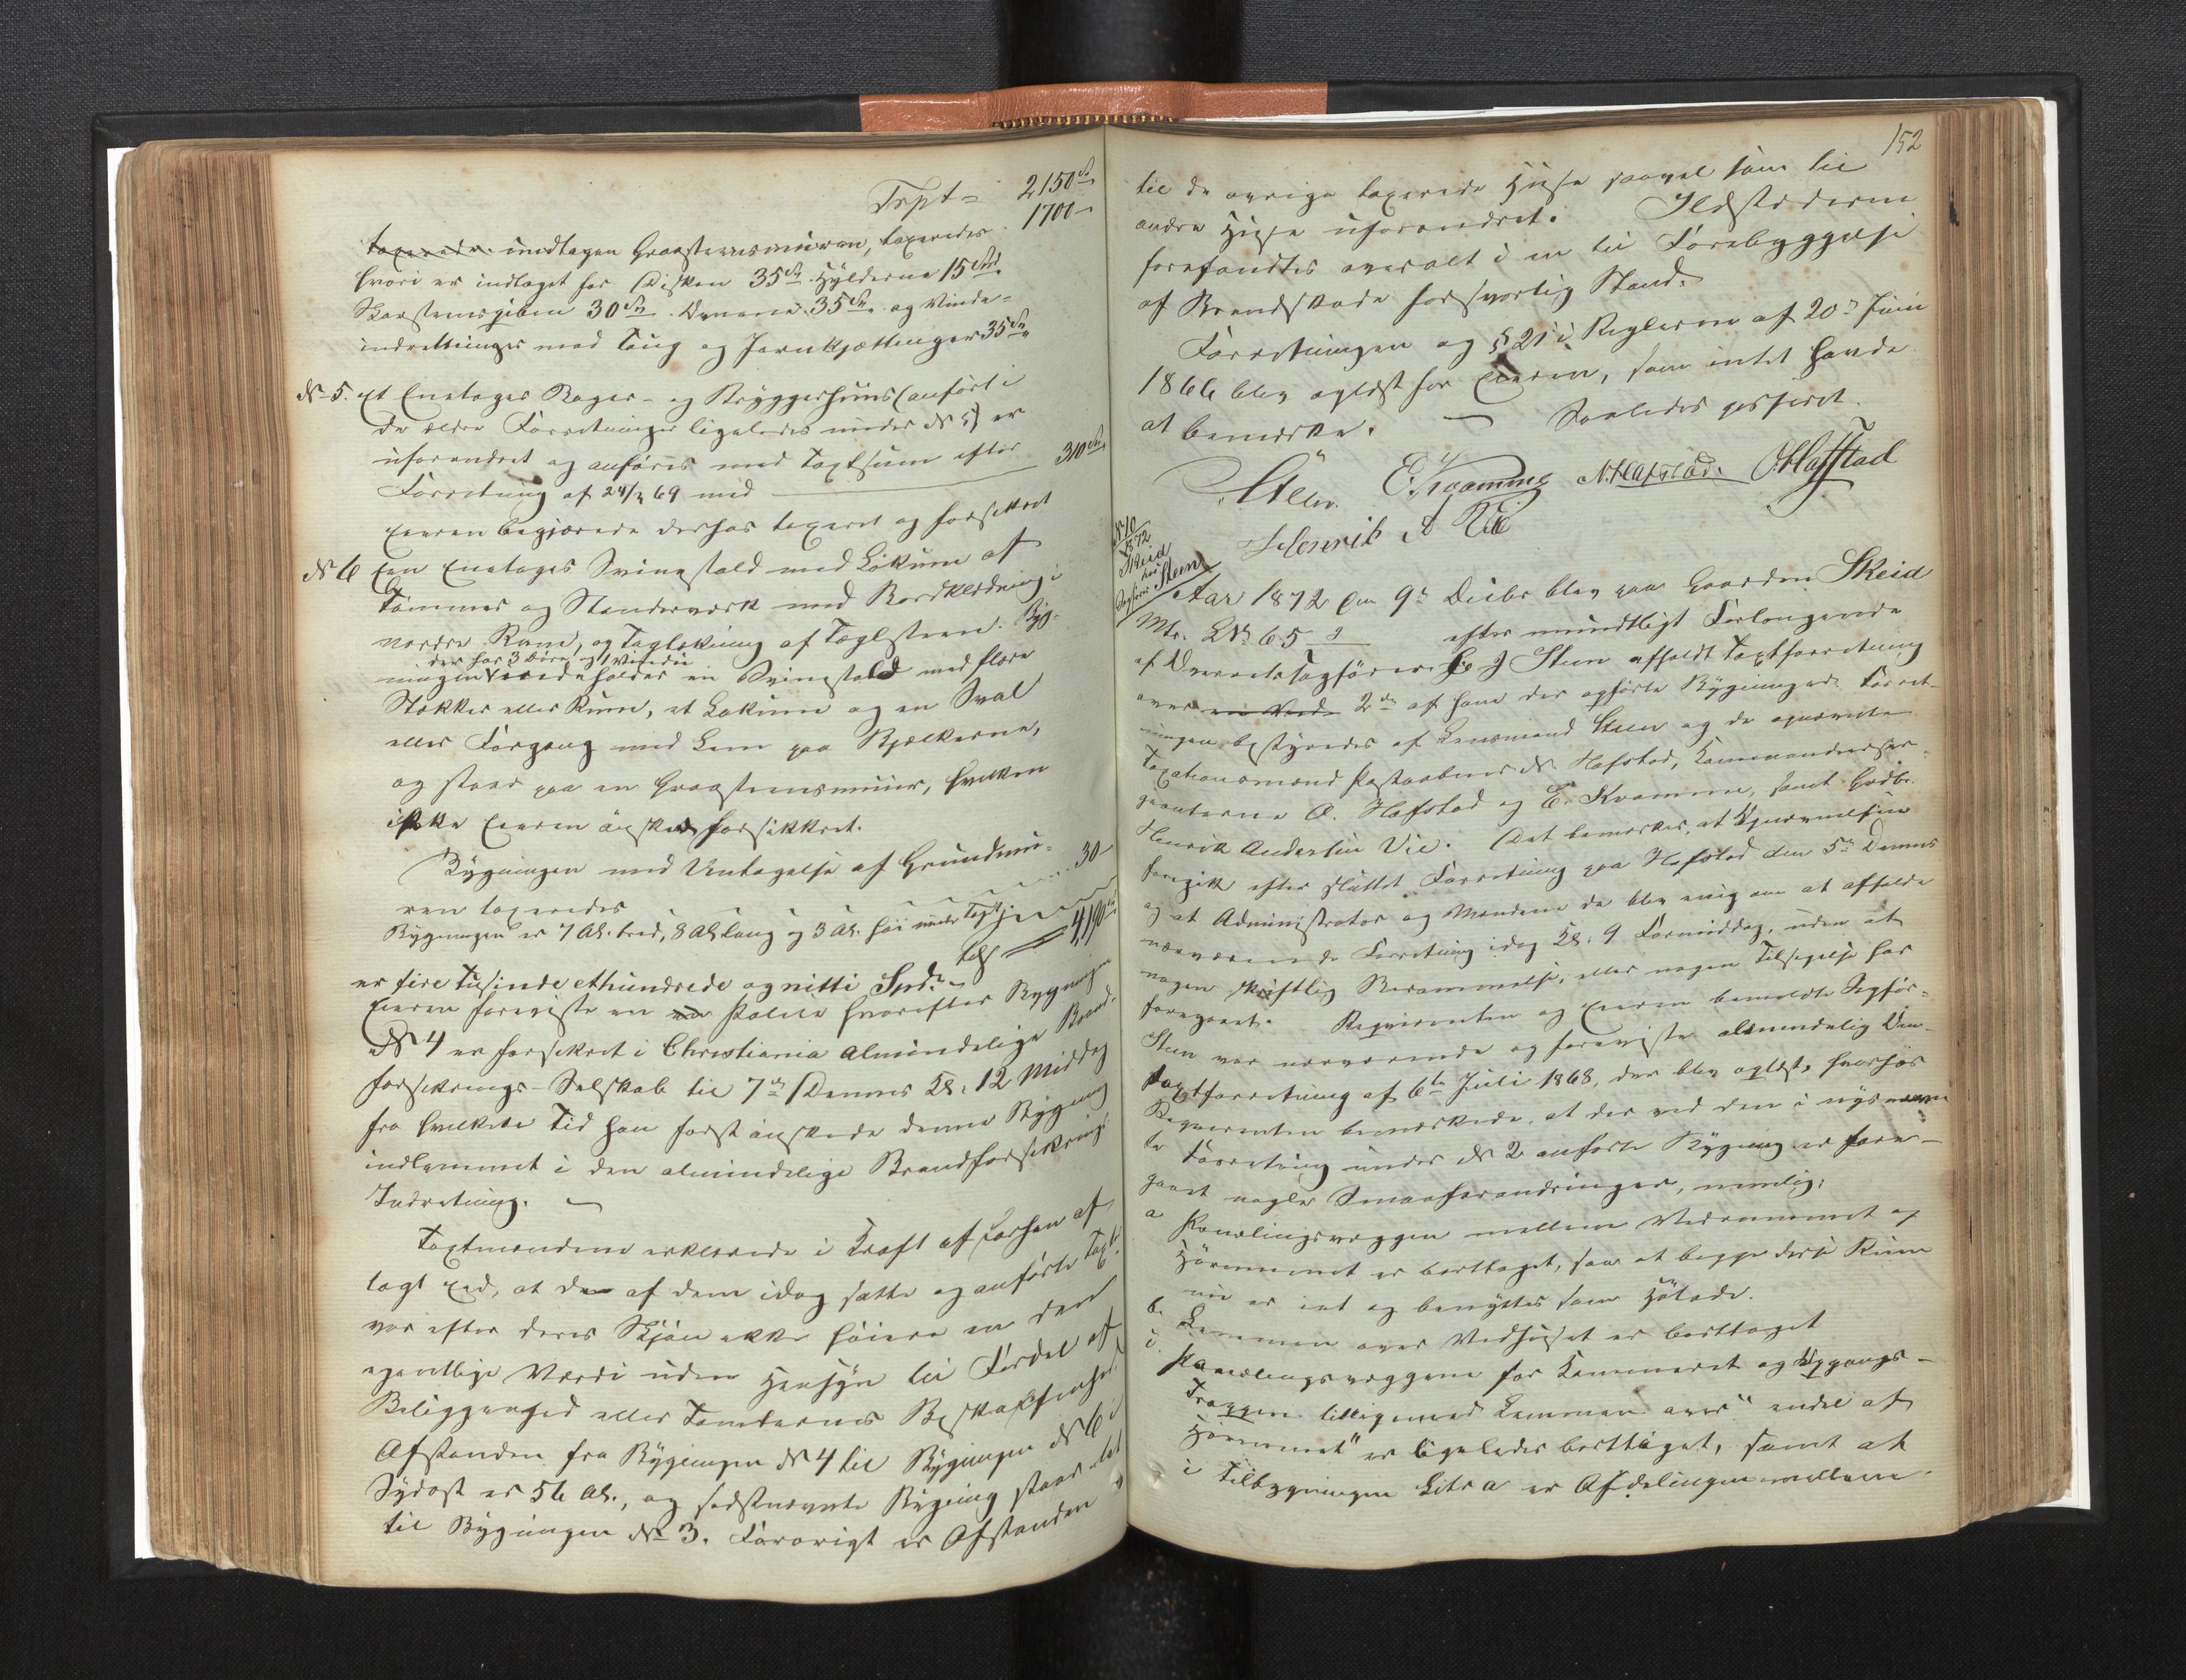 Trpt = 2150 Sp
taxerede indtagen Graasteensmuren, taxeredes 1700 -
hvori er indtaget for Disken 35 Sp Hylderne 15 Spd
Skorsteenspiben 30 Sp. Ovnene 35 Sp. og Vinde-
indretninger med Toug og Jernkjættinger 35 Sp
No 5. Et Eenetages Bager- og Bryggerhuus (anført i
de ældre Forretninger ligeledes under No 5) er
uforandret og anføres med Taxtsum efter
Forretning af 24/ 69 med 310 Sp
Eieren begjærede derhos taxeret og forsikkret
No 6 Een Eenetages Svinestald med Lokum af
Tømmer og Stenderværk med Bordklædning i
nordre Rum, og Taglækning af Taglsteen. Byg-
der har 3 Døre og 1 Vindu
ningen indeholder en Svinestald med flere
Stokker eller Rum, et Lokum og en Sval
eller Forgang med Lem paa Bjelkerne,
og staar paa en Graasteensmuur, hvilken
ikke Eieren ønsker forsikkret.
Bygningen med Undtagelse af Grundmu-
ren taxeredes 30 -
Bygningen er 7 Al. bred, 8 Al lang og 3 Al. høi under Tagt
tils = 4190
er fire tusinde et hundrede og nitti Spd.
Eieren foreviste en Police hvorefter Bygningen
No 4 er forsikret i Christiania almindelige Brand-
forsikrings-Selskab til 7de Dennes Kl. 12 Middag
fra hvilken Tid han først ønskede denne Bygning
indlemmet i den almindelige Brandforsikrings
Indretning. —
Taxtmændene erklærede i Kraft af forhen af-
lagt Eed, at de af dem idag satte og anførte Taxt
var efter deres Skjøn ikke høiere en den
egentlige Værdi uden Hensyn til Fordel af
Beliggenhed eller Tomternes Beskaffenhed
Afstanden fra Bygningen No 4 til Bygningen No 6 i
Sydost er 56 Al., og sidstnævnte Bygning staar tæt
til Bygningen No 3. Forøvrigt er Afstanden
152
til de øvrige taxerede Huse saavel som til
andre Huse uforandret. Ildstederne
forefandtes overalt i en til Forebyggelse
af Brandskade forsvarlig Stand.
Forretningen og § 21 i Reglerne af 20de Juni
1866 blev oplæst for Eieren, som intet havde
at bemærke. — Saaledes passeret.
Steen. E. Kvamme N. Hafstad. O. Hafstad
Henrik A Vie
No 10
1872
Skeid
hos
Sagfører Steen
Aar 1872 den 9de Decbr blev paa Gaarden Skeid
Mtr. L No 65 efter mundtligt Forlangende
af Overretssagfører J Steen afholdt Taxtforretning
over 2de af ham der opførte Bygninger. Forret-
ningen bestyredes af Lensmand Steen og de opnævnte
Taxationsmænd Postaabner N. Hafstad, Kommandeerser-
geanterne O. Hafstad og E. Kvamme, samt Grdbr.
Henrik Andersen Vie. Det bemærkes, at Opnævnelsen
foregik efter sluttet Forretning paa Hafstad den 5te Dennes
og at Administrator og Mændene da blev enig om at afholde
nærværende Forretning idag Kl. 9 Formiddag, uden at
nogen skriftlig Berammelse, eller nogen Tilsigelse har
foregaaet. Reqvirenten og Eieren bemeldte Sagfør-
Steen var nærværende og foreviste almindelig Om-
taxtforretning af 6te Juli 1868, der blev oplæst, hvorhos
Reqvirenten bemærkede, at der ved den i nysnævn-
te Forretning under No 2 anførte Bygning er fore-
gaaet nogle Smaaforandringer, nemlig:
a Panelingsvæggen mellem Vedrummet og
Hørummet er borttaget, saa at begge disse Rum
nu er eet og benyttes som Hølade.
b. Lemmen over Vedhuset er borttaget
c. Panelingsvæggene for Kammeret og Opgangs-
Trappen tilligemed Lemmen over "endel af
Hørummet" er ligeledes borttaget, samt at
i Tilbygningen Litra a er Afdelingen mellem